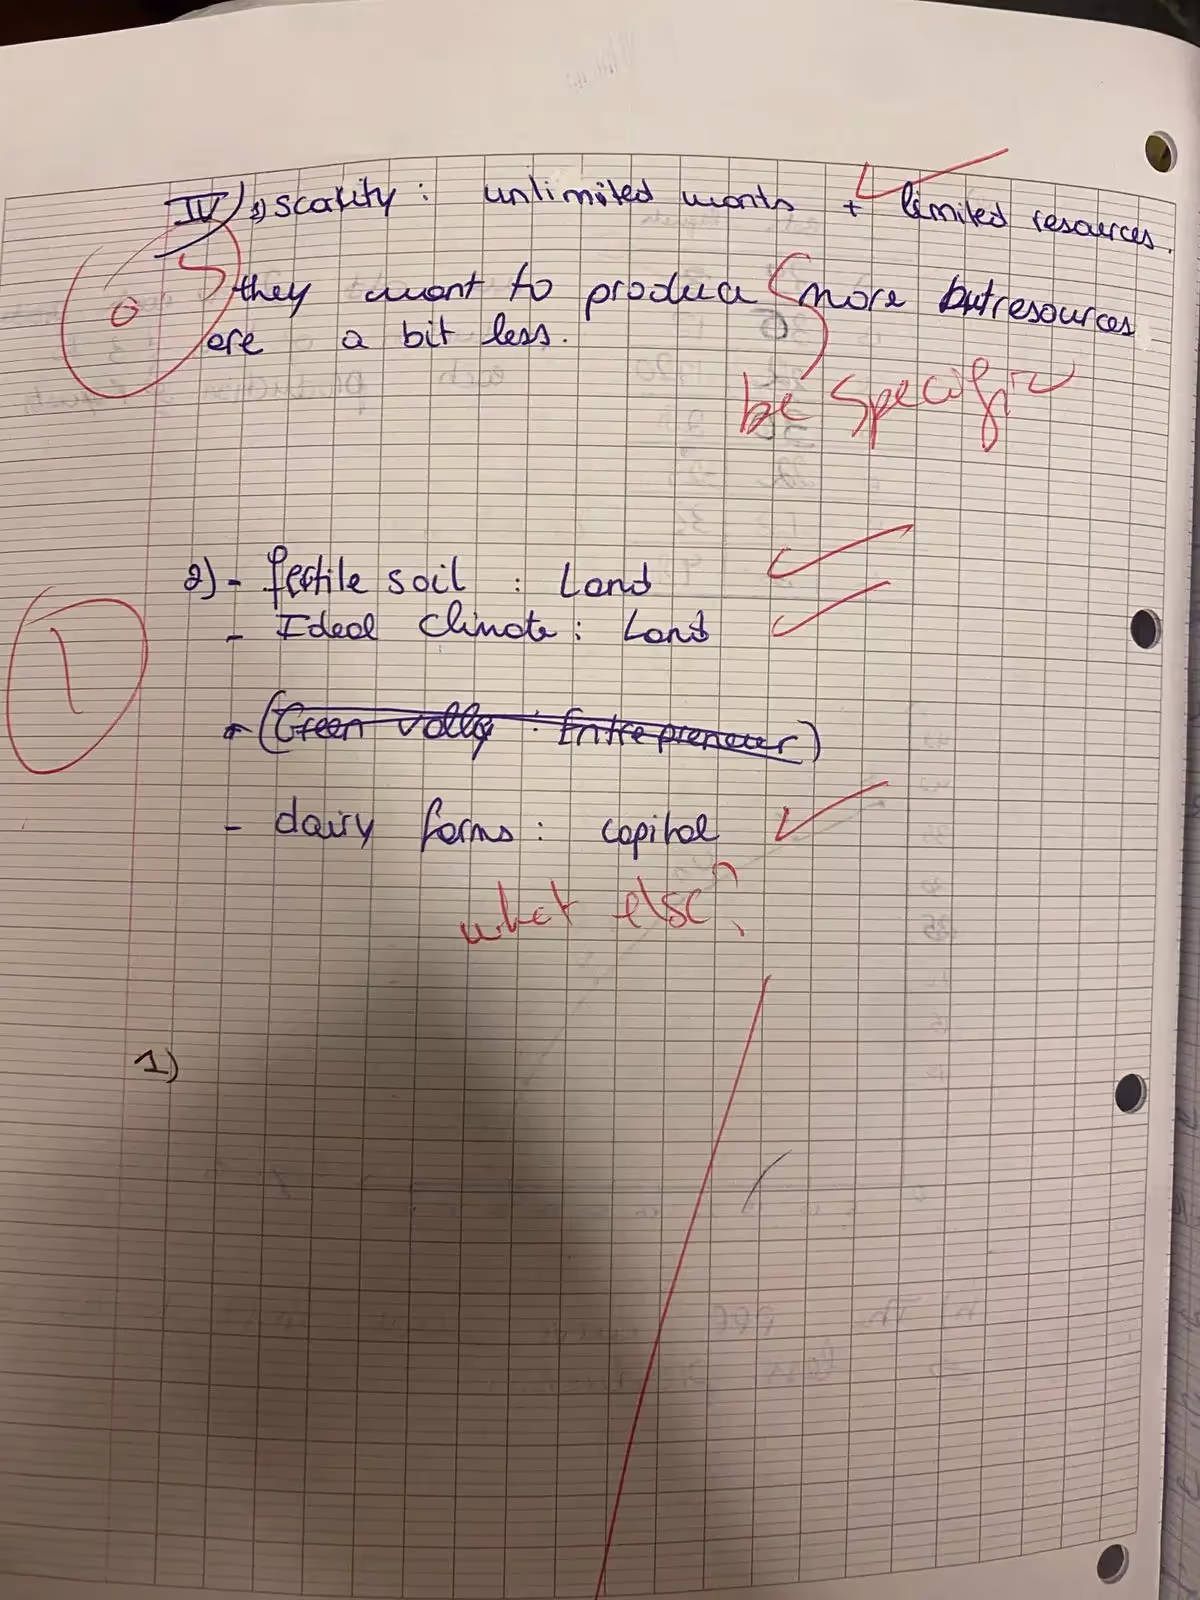 IV) 1) scarity : unlimited wants + limited resources.
0
they want to produce more but resources
are a bit less.
be specific
2) - fertile soil : Land
- Ideal climate : Land
1
- (Green vally : Entrepreneur)
- dairy farms : capital
what else?
1)